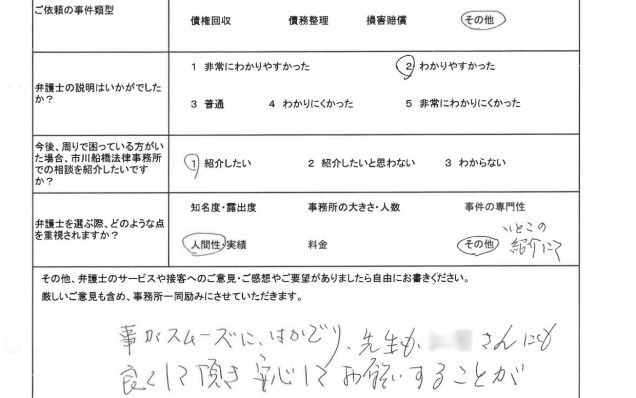 ご依頼の事件類型
債権回収 債務整理 損害賠償 その他
弁護士の説明はいかがでしたか？
1 非常にわかりやすかった 2 わかりやすかった
3 普通 4 わかりにくかった 5 非常にわかりにくかった
今後、周りで困っている方がいた場合、市川船橋法律事務所での相談を紹介したいですか？
1 紹介したい 2 紹介したいと思わない 3 わからない
弁護士を選ぶ際、どのような点を重視されますか？
知名度・露出度 事務所の大きさ・人数 事件の専門性
人間性・実績 料金 その他 いとこの
紹介にて
その他、弁護士のサービスや接客へのご意見・ご感想やご要望がありましたら自由にお書きください。
厳しいご意見も含め、事務所一同励みにさせていただきます。
事がスムーズに、はかどり、先生も、 さんにも
良くして頂き安心してお願いすることが